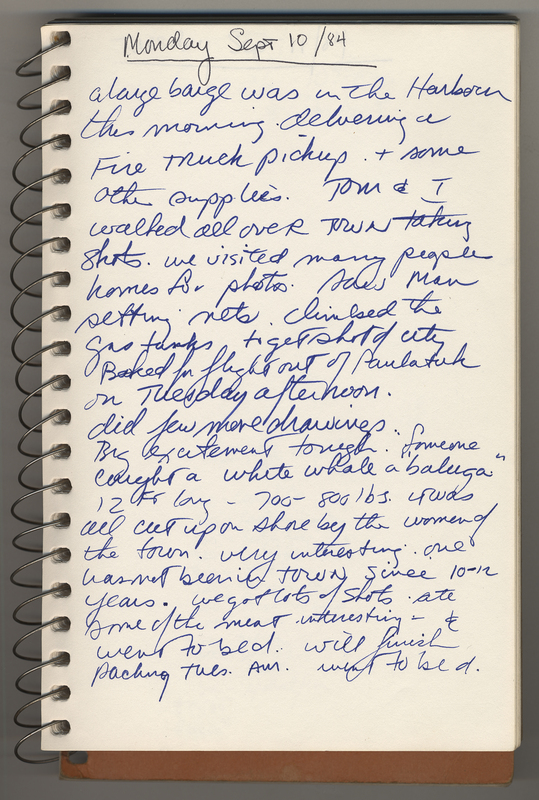 Monday Sept 10/84
a large barge was in the Harbour
this morning delivering a
Fire Truck pickup + some
other supplies. Tom & I
walked all over TOWN taking
shots. we visited many people
homes for photos. Saw man
setting nets. climbed the
gas tanks to get shot of city
Booked for flight out of Paulatuk
on Tuesday afternoon.
did few more drawings.
Big excitement tonight. Someone
caught a white whale a "baluga"
12 ft long - 700-800 lbs. it was
all cut up on shore by the women of
the town. very interesting. one
has not been in TOWN since 10-12
years. we got lots of shots. ate
some of the meat interesting - &
went to bed. will finish
packing Tues. AM. went to bed.